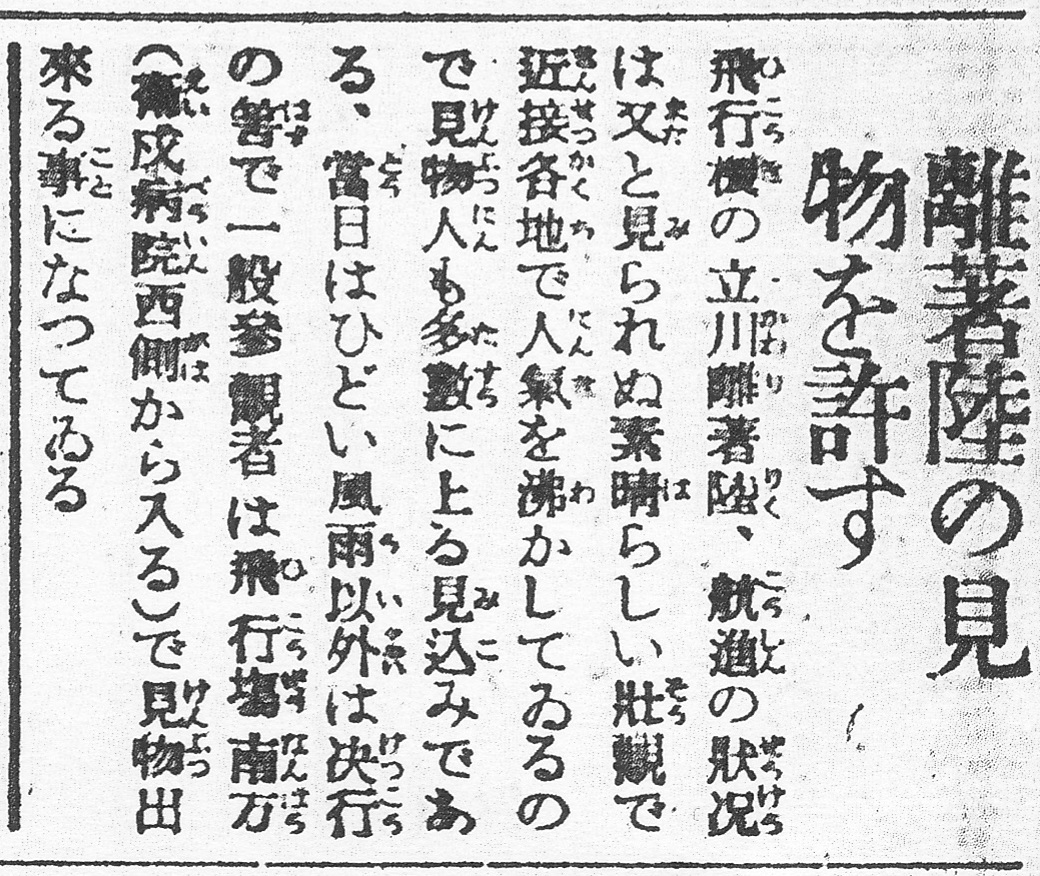 離著陸の見
物を許す
飛行機の立川離著陸、航進の狀況
は又と見られぬ素晴らしい壯觀で
近接各地で人氣を沸かしてゐるの
で見物人も多數に上る見込みであ
る、當日はひどい風雨以外は决行
の筈で一般參觀者は飛行塲南方
(衞戍病院西側から入る)で見物出
來る事になつてゐる